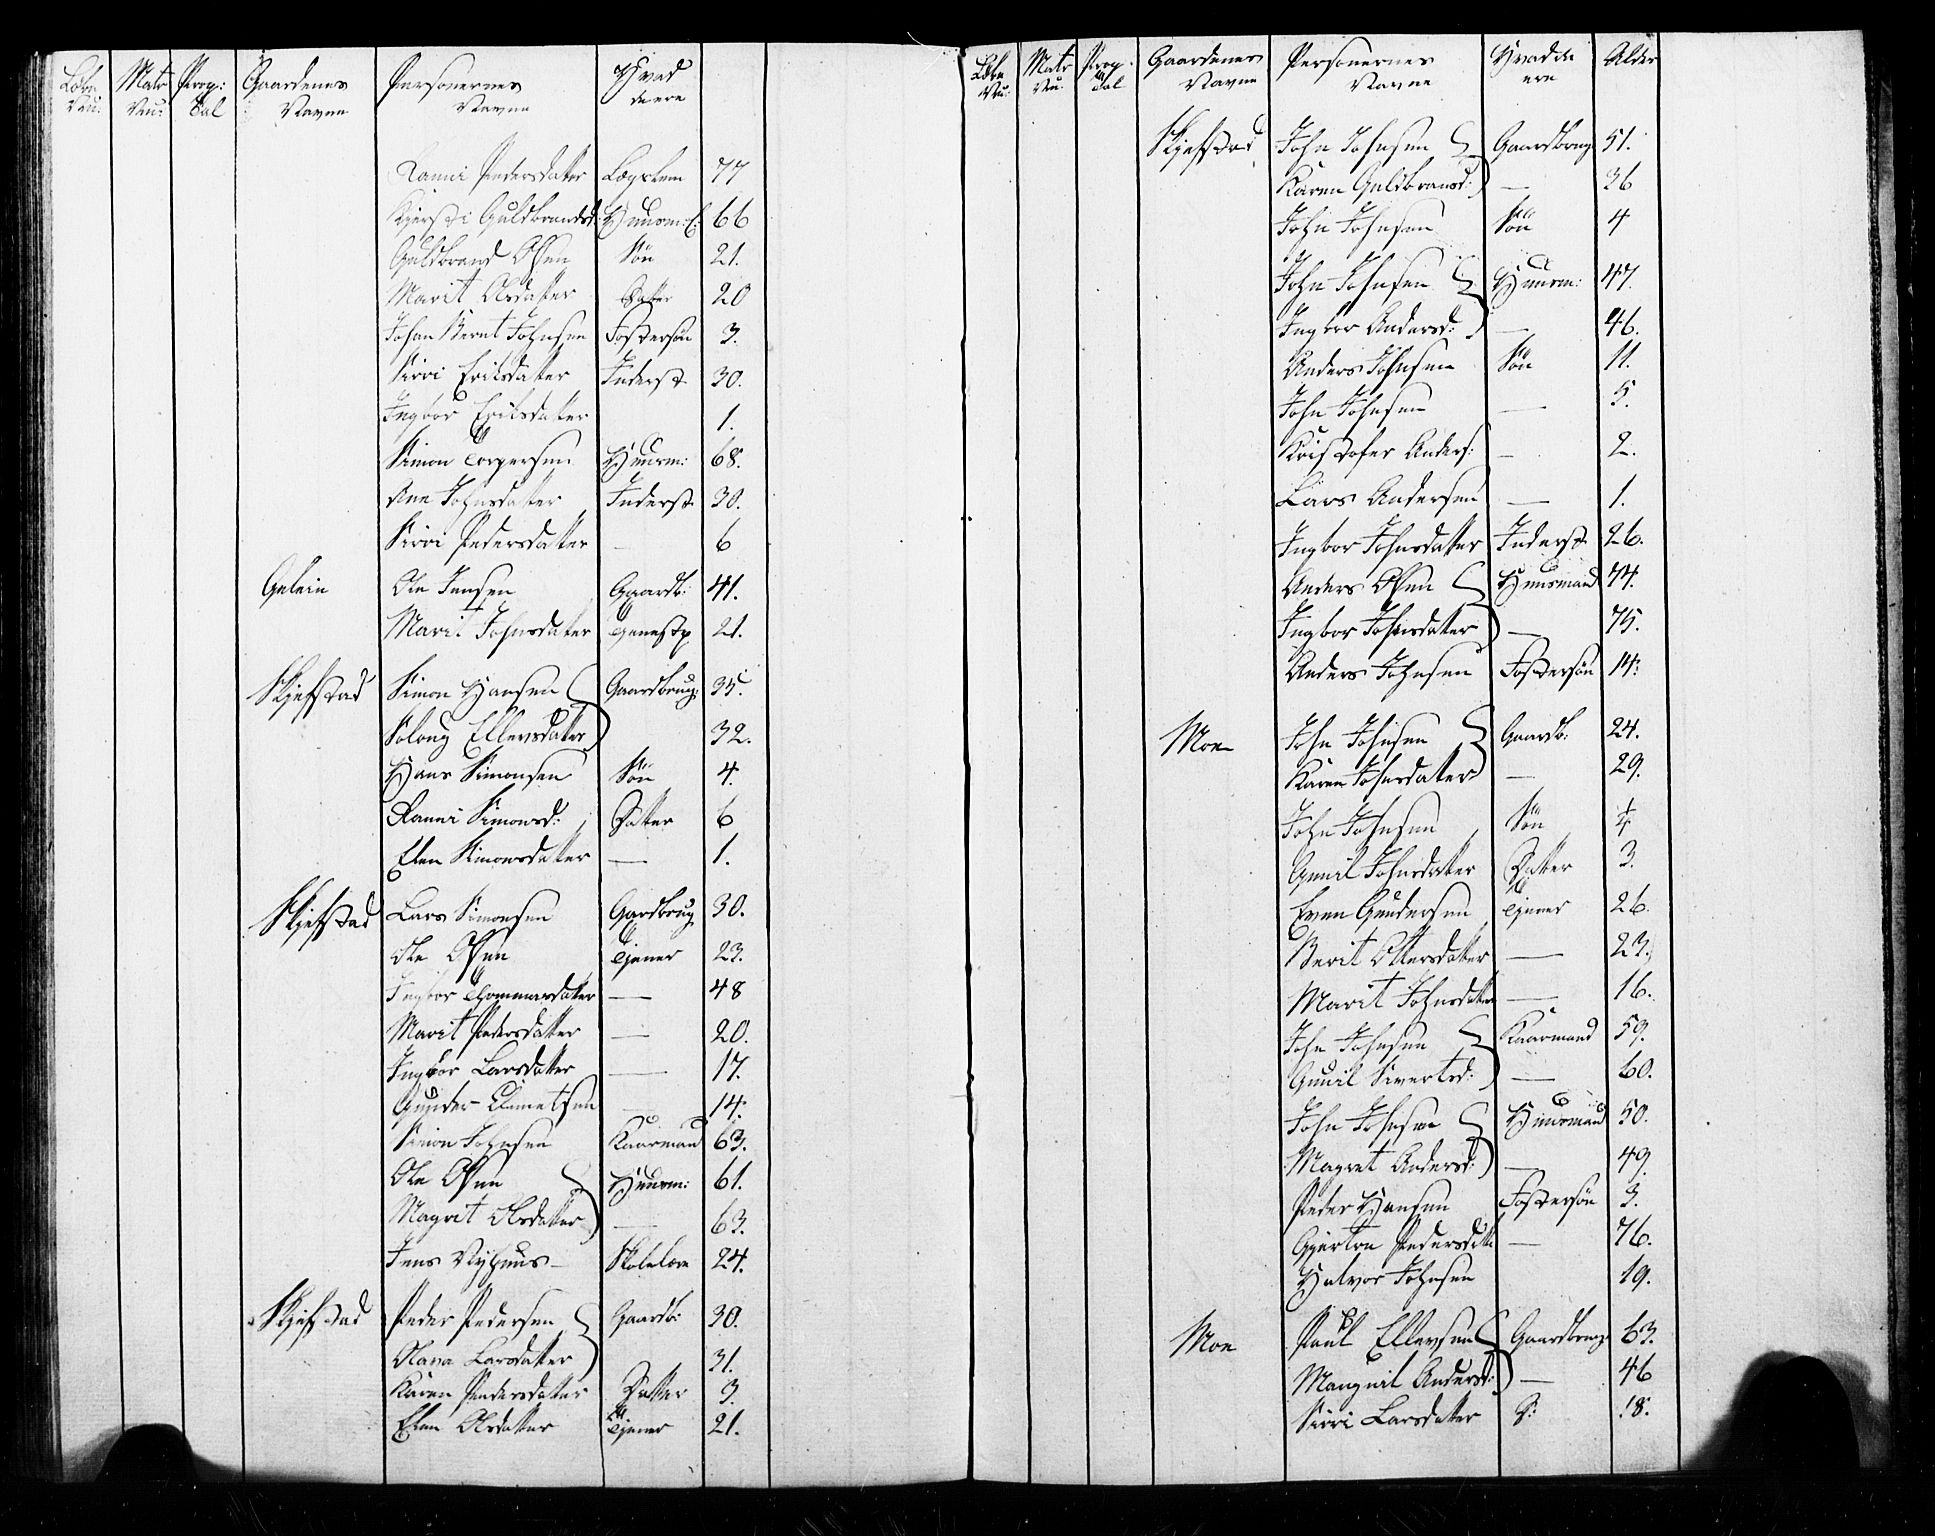 Løbe Matr Prop: Gaardenes Personernes Hvad
Nu: Nu: Tal Navne Navne de ere
Ranni Pedersdatter Lægslem 77
Kjersti Guldbrandsd: Huusm: E: 66
Guldbrand Olsen Søn 21.
Marit Olsdatter Datter 20
Johan Bernt Johnsen Fostersøn 3.
Sirri Eriksdatter Inderst 30.
Ingbor Eriksdatter 1.
Simon Torgersen Huusm: 68.
Ane Johnsdatter Inderst 30.
Sirri Pedersdatter — 6
Ole Jensen Gaardb: 41.
Marit Johnsdatter 21.
Skjefstad Simon Hansen Gaardbrug: 35.
Soloug Ellevsdatter 32.
Hans Simonsen Søn 4.
Ranni Simonsd: Datter 6
Elen Simonsdatter — 1.
Skjefstad Lars Simonsen Gardbrug 30.
Ole Olsen Tjener 23.
Ingbor Thommasdatter — 48
Marit Pedersdatter — 20.
Ingbor Larsdatter — 17.
Gunder Clemetsen — 14.
Simon Johnsen Kaarmand 63.
Ole Olsen Huusm: 61.
Magrit Olsdatter — 63.
Jens Nyhuus — Skolelære 24.
Skjefstad Peder Pedersen Gaardb: 30.
Olava Larsdatter 31.
Karen Pedersdatter Datter 3.
Elen Olsdatter Tjener 21.
Løbe Matr Prop: Gaardenes Personernes Hvad de Alder
Nu: Nu: Tal Navne Navne ere
Skjefstad John Johnsen Gaardbrug 51.
Karen Guldbransd: — 36
John Johnsen Søn 4
John Johnsen Huusm: 47.
Ingbor Andersd: — 46.
Anders Johnsen Søn 11.
John Johnsen — 5.
Kristofer Anders: — 2.
Lars Andersen — 1.
Ingbor Johnsdatter Inderst 26.
Anders Olsen Huusmand 74.
Ingbor Johnsdatter — 75.
Anders Johnsen Fostersøn 14.
Moe John Johnsen Gaardb: 24.
Karen Johnsdatter — 29.
John Johnsen Søn
Gunil Johnsdatter Datter 3.
Even Gundersen Tjener 26.
Berit Ottersdatter — 23.
Marit Johnsdatter — 16.
John Johnsen Kaarmand 59.
Gunil Sivertsd: — 60.
John Johnsen Huusmand 50.
Magret Andersd: — 49.
Peder Hansen Fostersøn 3.
Pedersdatter — 76.
Halvor Johnsen 19.
Moe Paul Ellevsen Gaardbrug: 63.
Mangnil Andersd: — 46
Sirri Larsdatter D: 18.